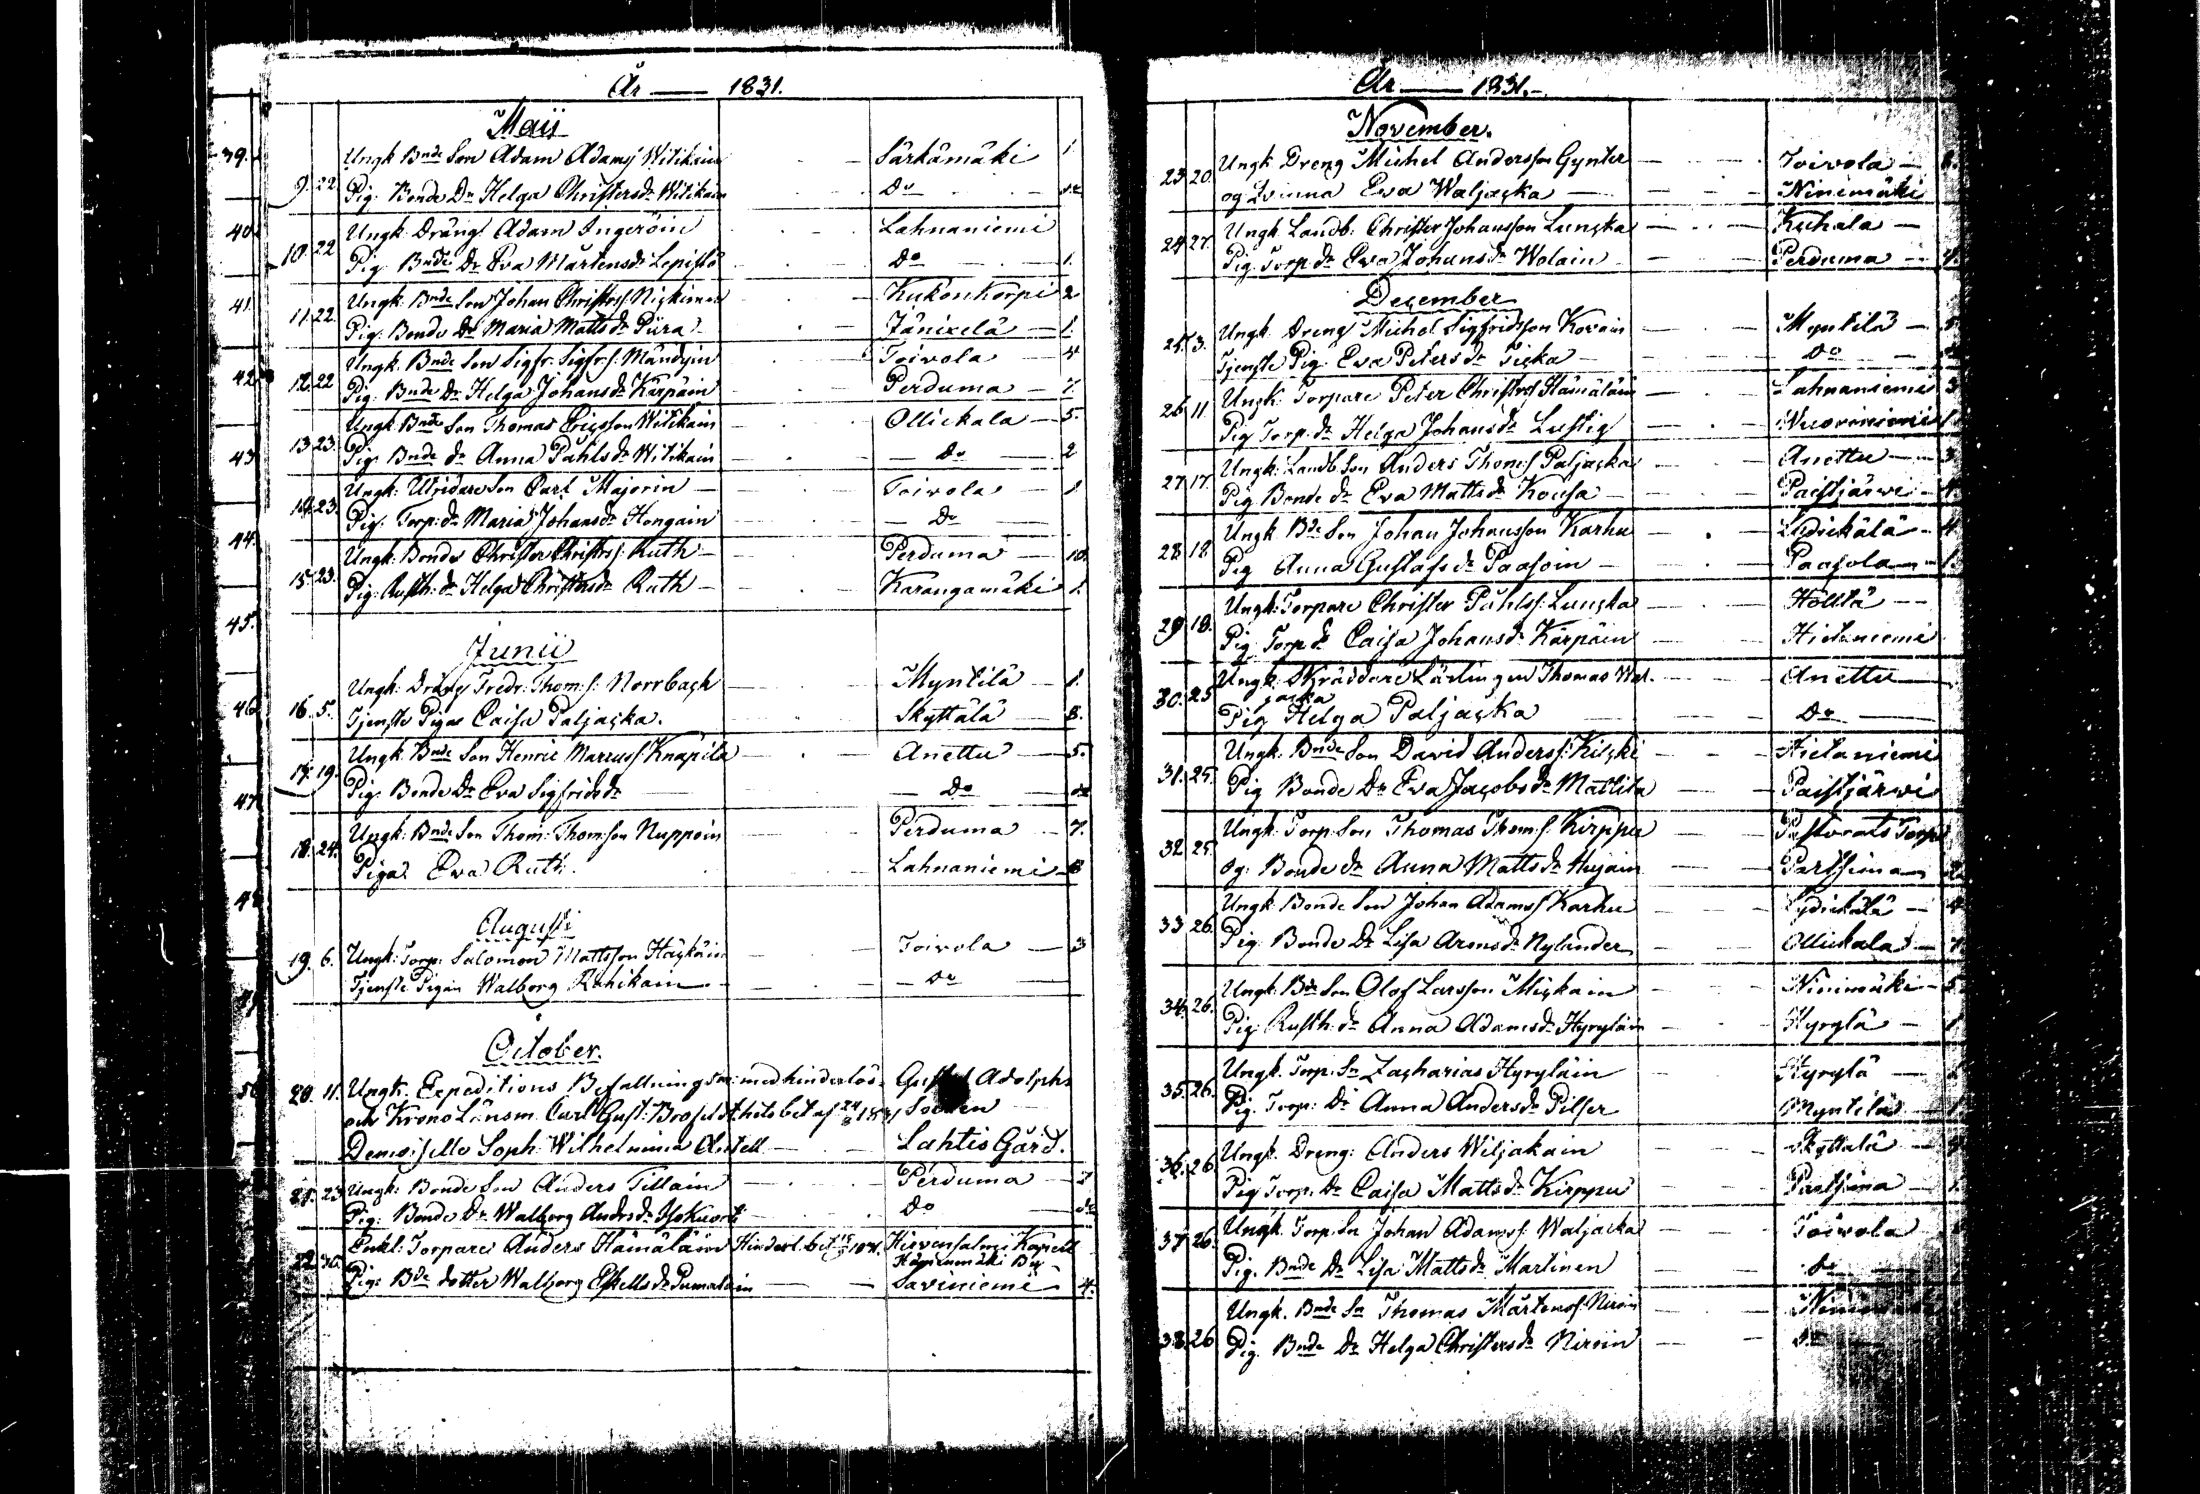 År — 1831.
Maij
39.
Ungk Bnde Son Adam Adams Witikain — Särkämäki 1
9. 22. Pig: Bonde Dr Helga Christersdr Witikain Do
40. Ungk Dräng Adam Ingeröin — Lahnaniemi
10. 22 Pig Bnde Dr Eva Mårtensdr Lepistö Do 1.
41. Ungk Bnde Son Johan Christrs: — Kukonkorpi 2
11. 22. Pig: Bonde Dr Maria Mattsdr Piira — Jänixelä — 1.
Ungk. Bnde Son Sigfr. Sigfrs: Mändyin Toivola — 4
42. 12. 22 Pig: Bnde Dr Helga Johansdr Kärpäin — Perduma — 7.
Ungk Bnde Son Thomas Ericsson Witikain Ollickala — 5.
43 13. 23. Pig. Bnde dr Anna Påhlsdr Witikain — Do — 2
Ungk: Utridare Son Carl Majorin — Toivola — 1
14. 23. Pig: Torp: dr Maria Johansdr Hongain — Do —
44. Ungk: Bonde Christer Christrs: Ruth — Perduma — 10.
15. 23. Pig: Rusth: dr Helga Christersdr Ruth — Karangamäki 1.
45.
Junii
Ungk: Dräng Fredr: Thoms: Norrbach — Myntilä — 1.
46. 16. 5. Tjenste Pigan Caisa Paljacka. Skyttälä — 8.
Ungk: Bnde Son Henric Marcuss Knäpilä — Anettu — 5.
17. 19. Pig: Bonde Dr Eva Sigfridsdr — Do —
47. Ungk: Bnde Son Thom: Thomson Nuppoin Perduma — 7.
18. 24. Piga Eva Ruth. Lahnaniemi — 8
48.
Augusti
19. 6. Ungk: Torp: Salomon Mattsson Häckäin — Toivola — 3
Tjenste Pigan Walborg Rahikain — Do —
49
October.
50 20. 11. Ungk: Expeditions Befallningsm: med hinderlös- Adolphs
och Krono Länsm. Carl Gust: Brofeldt hets bet af 24/8 1831 Socken
Demoiselle Soph: Wilhelmina — Lahtis Gård.
21. 23 Ungk: Bonde Son Anders Tillain — Perduma — 7
Pig: Bonde Dr Walborg Andrsdr Isokuorti Do
Enkl: Torpare Anders Hämäläin Hinderl. bet Hirvensalmi Kapell
By
22. 30. Pig: Bde dotter Walborg Eskellsdr Pumalain — Saviniemi — 4.
År — 1831.
November.
23 20 Ungk Dreng Michel Andersson Gynter — Toivola — 6.
og Qvinna Eva Waljacka — Ninimäki
24 27. Ungk. Landb: Christer Johansson Luncka — Kuhala —
Pig. Torp. dr Eva Johansdr Wolain — Perduma — 7.
December
25. 3. Ungk. Dreng Michel Sigfridsson Kovain — Myntilä —
Tjenste Pig: Eva Petersdr Ticka — Do
26 11 Ungk. Torpare Peter Christers Hämäläin Lahnaniemi 3
Pig Torp. dr Helga Johansdr Lustig — Wuoriniemi
27 17. Ungk: Landb Son Anders Thoms Paljacka Anettu — 3
Pig Bonde dr Eva Mattsdr Kousa — Paistjärvi —
28 18 Ungk Bde Son Johan Johansson Karhu — Lydickälä — 4
Pig Anna Gustafsdr Paasoin — Paasola — 1.
29 18. Ungk: Torpare Christer Påhlss: Luncka — Hölltä —
Pig Torp dr Caisa Johansdr Kärpäin — Hietaniemi
30. 25 Ungk. Skräddare Lärlingen Thomas Wal- — Anettu
jacka
Pig Helga Paljacka Do —
31. 25. Ungk. Bnde Son David Anderss: Kilski — Hietaniemi
Pig Bonde Dr Eva Jacobsdr Mattila — Paistjärvi
32 25 Ungk: Torp Son Thomas Thoms: Kirppu — Pastorats Torp
og: Bonde dr Anna Mattsdr Hujain — Partsima — 2
33 26. Ungk Bonde Son Johan Adams Karhu — Lydickälä — 4
Pig. Bonde Dr Lisa Armsdr Nylander — Ollickala — 7
34. 26. Ungk. Bde Son Olof Larsson Mickain — Ninimäki — 5.
Pig: Rusth: dr Anna Adamsdr Hyryläin — Hyrylä — 1
35. 26. Ungk. Torp. Sn Zacharias Hyryläin — Hyrylä —
Pig. Torp: Dr Anna Andersdr Pilser Myntilä — 1
36. 26 Ungk. Dreng: Anders Wiljakain — Skyttälä —
Pig Torp: Dr Caisa Mattsdr Kirppu — Partsima —
37 26. Ungk. Torp. Sn Johan Adamss: Waljacka — Toivola
Pig. Bnde Dr Lisa Mattsdr Martinen — Do
Ungk. Bnde Sn Thomas Mårtenss: Niroin —
38. 26 Pig. Bnde Dr Helga Christersdr Niroin — Do —